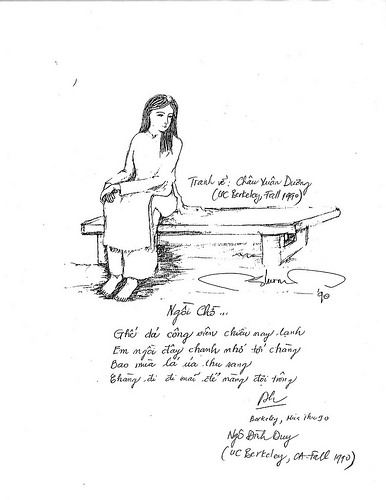 Tranh vẽ: Châu Xuân Dương
(UC Berkeley, Fall 1990)
'90
Ngồi Chờ...
Ghế đá công viên chiều nay lạnh
Em ngồi đây chanh nhớ tới chàng
Bao mùa lá úa thu sang
Chàng đi đi mãi để nàng đợi trông
Berkeley,
Ngô Đình Duy
(UC Berkeley, CA Fall 1990)